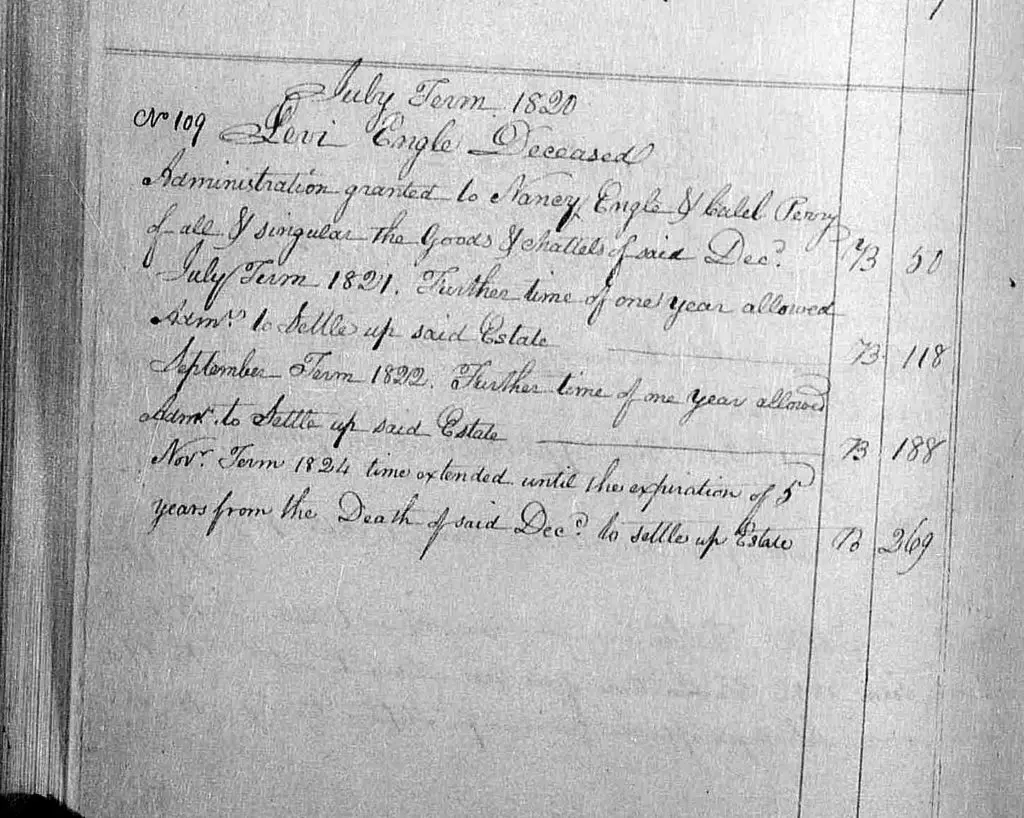 July Term. 1820
No 109 Levi Engle Deceased
Administration granted to Nancy Engle & Caleb Perry
of all & singular the Goods & chattels of said Decd. B 50
July Term 1821. Further time of one year allowed
Admrs to Settle up said Estate B 118
September Term 1822. Further time of one year allowed
Admr. to Settle up said Estate B 188
Novr. Term 1824 time extended until the expiration of 5
years from the Death of said Decd. to settle up Estate B 269